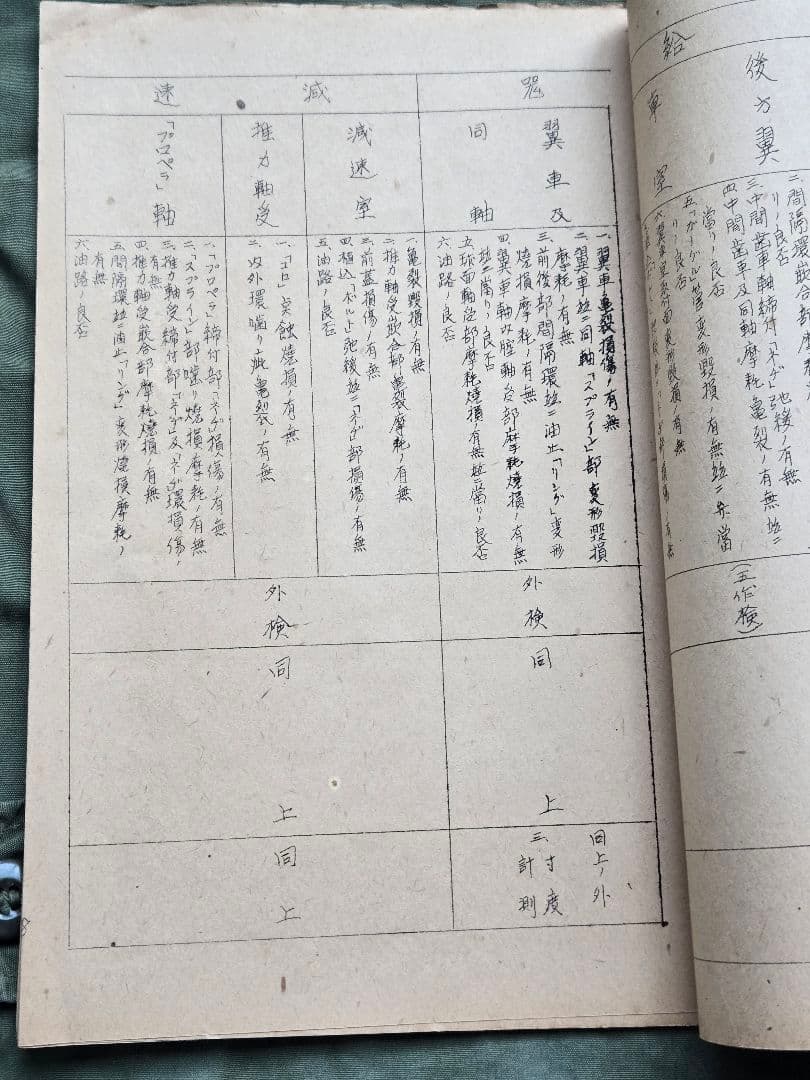 給
後方翼
車
室
二、間隔環嵌合部摩
リノ良否
三、中間歯車軸締付「ネヂ」弛緩ノ有無並ニ
四、中間歯車及同軸摩耗亀裂ノ有無並ニ歯当
当リノ良否
リノ良否
器
翼車及
同軸
一、翼車亀裂損傷ノ有無
二、翼車並ニ同軸「スプライン」部変形毀損
摩耗ノ有無
三、前後部間隔環並ニ油止「リング」変形
焼損摩耗ノ有無
四、翼車軸内腔軸受部摩耗焼損ノ有無
並ニ当リノ良否
五、球面軸受部摩耗焼損ノ有無並ニ当リノ良否
六、油路ノ良否
外検
同上
同上ノ外
三、寸度
計測
減速
減速室
一、亀裂毀損ノ有無
二、推力軸受嵌合部亀裂摩耗ノ有無
三、前蓋損傷ノ有無
四、植込「ボルト」弛緩並ニ「ネヂ」部損傷ノ有無
五、油路ノ良否
推力軸受
一、「コロ」点蝕焼損ノ有無
二、内外環噛リ疵亀裂ノ有無
「プロペラ」軸
一、「プロペラ」締付部「ネヂ」損傷ノ有無
二、「スプライン」部噛リ焼損摩耗ノ有無
三、推力軸受締付部「ネヂ」及「ネヂ」環損傷ノ
有無
四、推力軸受嵌合部摩耗焼損ノ有無
五、間隔環並ニ油止「リング」変形焼損摩耗ノ
有無
六、油路ノ良否
外検
同上
同上